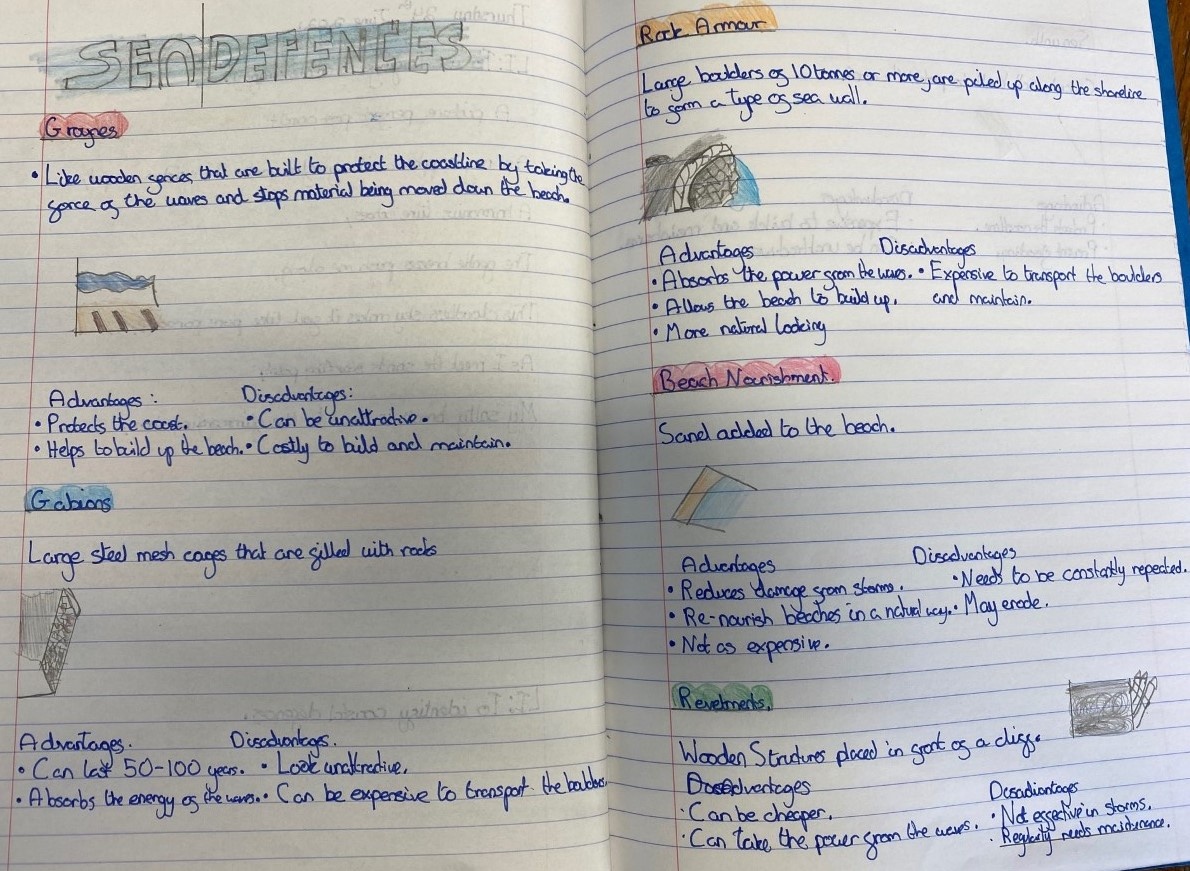 SEA DEFENCES
Groynes
• Like wooden fences that are built to protect the coastline by taking the
force of the waves and stops material being moved down the beach.
Advantages :
• Protects the coast.
• Helps to build up the beach.
Disadvantages:
• Can be unattractive.
• Costly to build and maintain.
Gabions
Large steel mesh cages that are filled with rocks
Advantages.
• Can last 50-100 years.
• Absorbs the energy of the waves.
Disadvantages.
• Look unattractive.
• Can be expensive to transport the boulders.
Rock Armour
Large boulders of 10 tonnes or more, are piled up along the shoreline
to form a type of sea wall.
Advantages
• Absorbs the power from the waves.
• Allows the beach to build up.
• More natural looking
Disadvantages
• Expensive to transport the boulders
and maintain.
Beach Nourishment.
Sand added to the beach.
Advantages
• Reduces damage from storms.
• Re-nourish beaches in a natural way.
• Not as expensive.
Disadvantages
• Needs to be constantly repeated.
• May erode.
Revetments.
Wooden Structures placed in front of a cliff.
Advantages
• Can be cheaper.
• Can take the power from the waves.
Disadvantages
• Not effective in storms.
• Regularly needs maintenance.